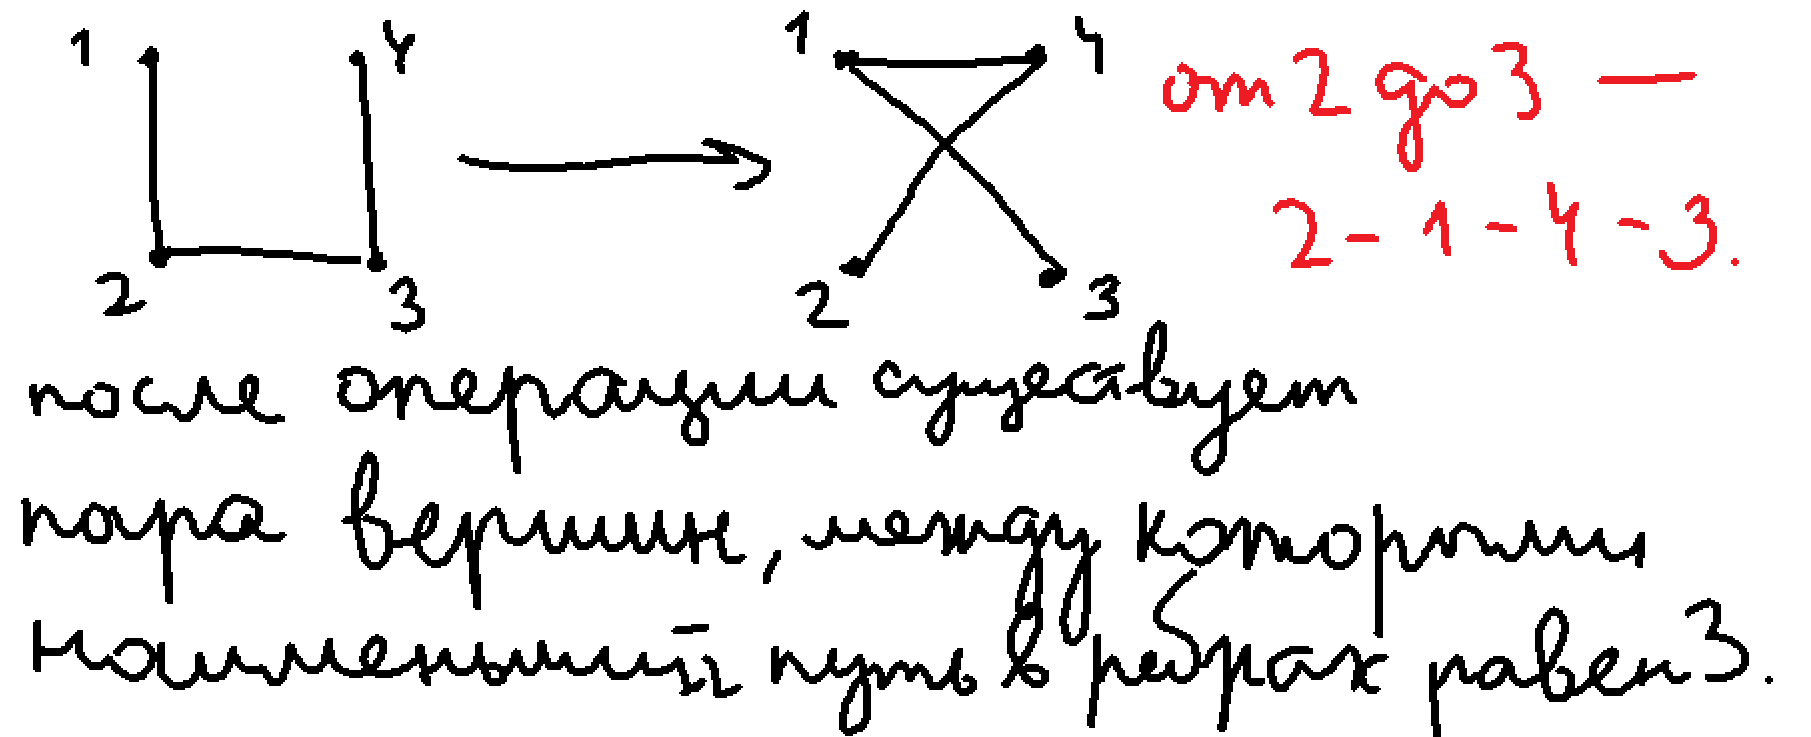 1 4 1 4 от 2 до 3 —
2 - 1 - 4 - 3.
2 3 2 3
после операции существует
пара вершин, между которыми
наименьший путь в рёбрах равен 3.